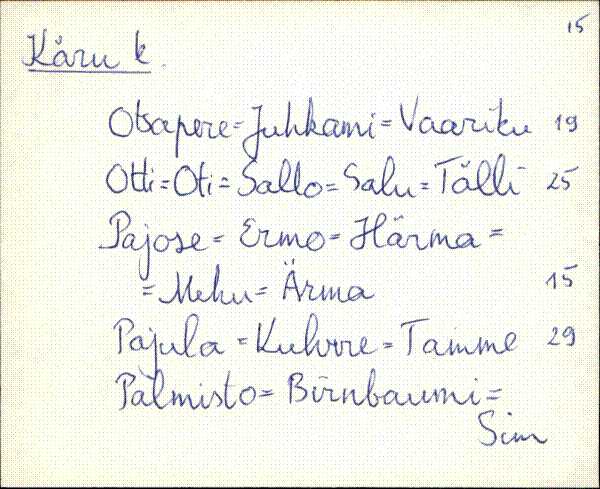 15
Käru k.
Otsapere = Juhkami = Vaariku 19
Otti = Oti = Sallo = Salu = Tälli 25
Pajose = Ermo = Härma =
= Meku = Ärma 15
Pajula = Kuhvre = Tamme 29
Palmisto = Birnbaumi =
Sim